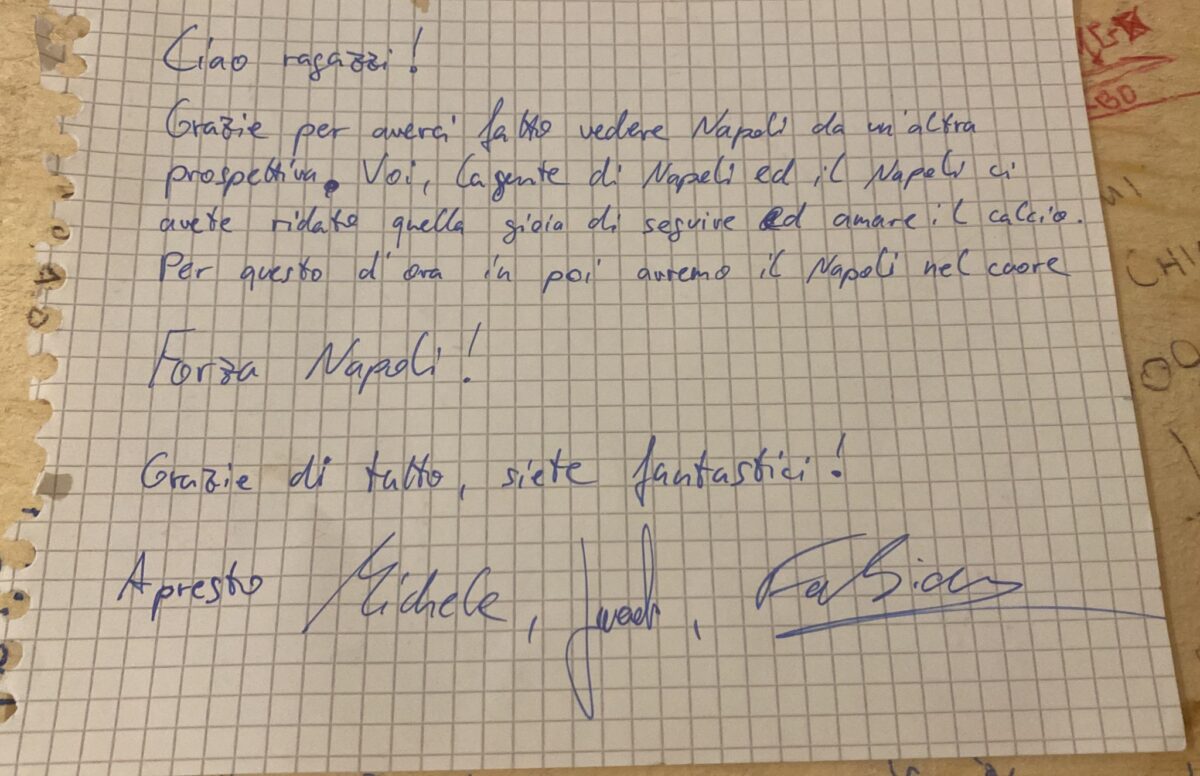 Ciao ragazzi!
Grazie per averci fatto vedere Napoli da un'altra
prospettiva. Voi, la gente di Napoli ed il Napoli ci
avete ridato quella gioia di seguire ed amare il calcio.
Per questo d'ora in poi avremo il Napoli nel cuore
Forza Napoli!
Grazie di tutto, siete fantastici!
A presto Michele, , Fabian